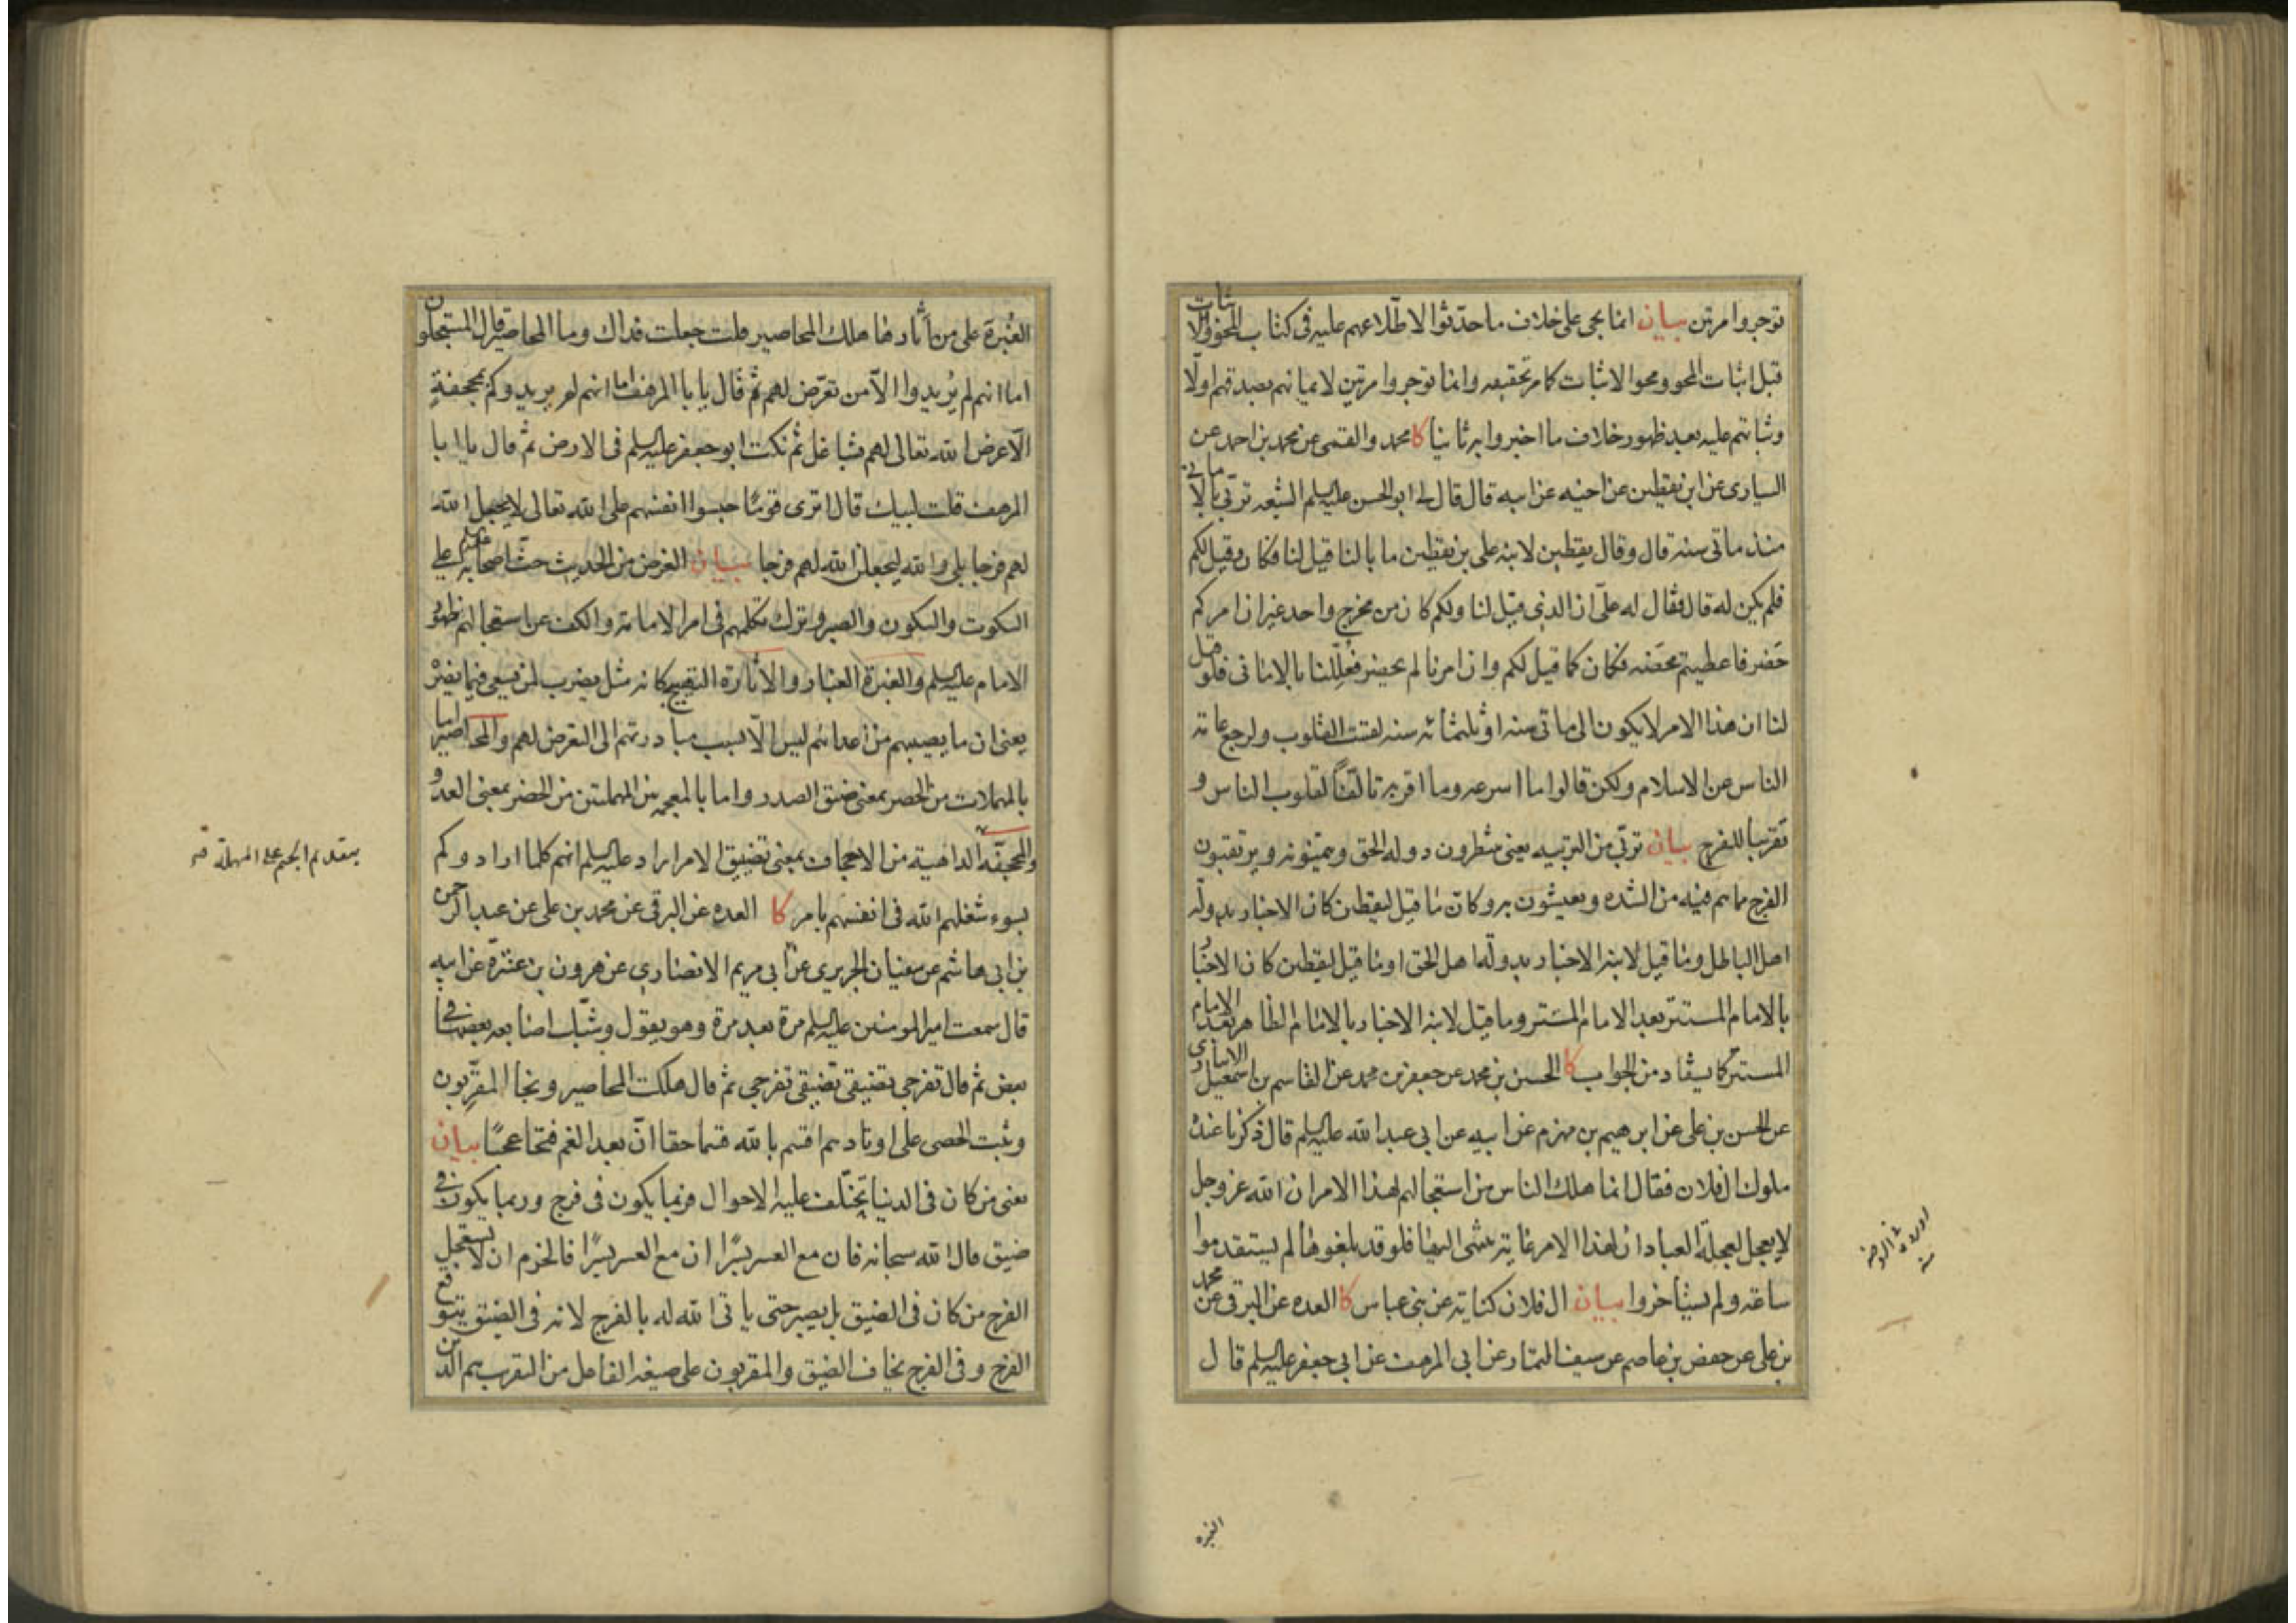 توجروا مرتين بيان انما يجئ على خلاف ما حدثوا لاطلاعهم عليه في كتاب المحو والاثبات
قبل اثبات المحو ومحو الاثبات كما مر تحقيقه وانما توجروا مرتين لايمانهم بصدقهم اولا
وثباتهم عليه بعد ظهور خلاف ما اخبروا به ثانيا كا محمد والقمي عن محمد بن احمد عن
السياري عن ابن يقطين عن اخيه عن ابيه قال قال لي ابو الحسن عليه السلم الشيعه تربي بالاماني
منذ مأتي سنه قال وقال يقطين لابنه علي بن يقطين ما بالنا قيل لنا فكان وقيل لكم
فلم يكن له قال فقال له علي ان الذي قيل لنا ولكم كان من مخرج واحد غير ان امركم
حضر فاعطيتم محضه فكان كما قيل لكم وان امرنا لم يحضر فعللنا بالاماني فلو قيل
لنا ان هذا الامر لا يكون الى مأتي سنه او ثلثمائه سنه لقست القلوب ولرجع عامة
الناس عن الاسلام ولكن قالوا ما اسرعه وما اقربه تالفا لقلوب الناس و
تقريبا للفرج بيان تربي من التربيه يعني ينتظرون دوله الحق ويتمنونه ويرتقبون
الفرج مما هم فيه من الشده ويعيشون به وكان ما قيل ليقطين كان الاخبار بدولة
اهل الباطل وما قيل لابنه الاخبار بدولة اهل الحق او ما قيل ليقطين كان الاخبا
بالامام المستتر بعد الامام المستتر وما قيل لابنه الاخبار بالامام الظاهر بعد الامام
المستتر كما يستفاد من الجواب كا الحسن بن محمد عن جعفر بن محمد عن القاسم بن اسمعيل الانباري
عن الحسن بن علي عن ابرهيم بن مهزم عن ابيه عن ابي عبد الله عليه السلم قال ذكرنا عنده
ملوك ال فلان فقال انما هلك الناس من استعجالهم لهذا الامر ان الله عز وجل
لا يعجل لعجلة العباد ان لهذا الامر غاية ينتهي اليها فلو قد بلغوها لم يستقدموا
ساعة ولم يستأخروا بيان ال فلان كناية عن بني عباس كا العده عن البرقي عن محمد
بن علي عن حفص بن عاصم عن سيف التمار عن ابي المرهف عن ابي جعفر عليه السلم قال
الغبره
الغبرة على من أثارها هلك المحاصير قلت جعلت فداك وما المحاصير قال المستعجلون
اما انهم لم يريدوا الا من تعرض لهم ثم قال يا با المرهف اما انهم لم يريدوكم بمجحفة
الا عرض الله تعالى لهم بشاغل ثم نكت ابو جعفر عليه السلم في الارض ثم قال يا ابا
المرهف قلت لبيك قال اترى قوما حبسوا انفسهم على الله تعالى لا يجعل الله
لهم فرجا بلى والله ليجعلن الله لهم فرجا بيان الغرض من الحديث حث اصحابه على
السكوت والسكون والصبر وترك تكلمهم في امر الامامة والكف عن استعجالهم ظهور
الامام عليه السلم والغبرة الغبار والاثارة التهييج كانه مثل يضرب لمن يسعى فيما يضره
يعني ان ما يصيبهم من اعدائهم ليس الا بسبب مبادرتهم الى التعرض لهم والمحاصير اما
بالمهملات من الحصر بمعنى ضيق الصدر واما بالمعجمه بين المهملتين من الحضر بمعنى العدو
والمجحفة الداهية من الاجحاف بمعنى تضييق الامر اراد عليه السلم انهم كلما ارادوكم
بسوء شغلهم الله في انفسهم بامر كا العده عن البرقي عن محمد بن علي عن عبد الرحمن
بن ابي هاشم عن سفيان الجريري عن ابي مريم الانصاري عن هرون بن عنترة عن ابيه
قال سمعت امير المومنين عليه السلم مرة بعد مرة وهو يقول وشبك اصابعه بعضها في
بعض ثم قال تفرجي تضيقي تضيقي تفرجي ثم قال هلكت المحاصير ونجا المقربون
وثبت الحصى على اوتادهم اقسم بالله قسما حقا ان بعد الغم فتحا عجبا بيان
يعني من كان في الدنيا يختلف عليه الاحوال فربما يكون في فرج وربما يكون في
ضيق قال الله سبحانه فان مع العسر يسرا ان مع العسر يسرا فالحزم ان لا يستعجل
الفرج من كان في الضيق بل يصبر حتى ياتي الله له بالفرج لانه في الضيق يتوقع
الفرج وفي الفرج يخاف الضيق والمقربون على صيغه الفاعل من التقرب هم الذين
بتقديم الجيم على المهملة